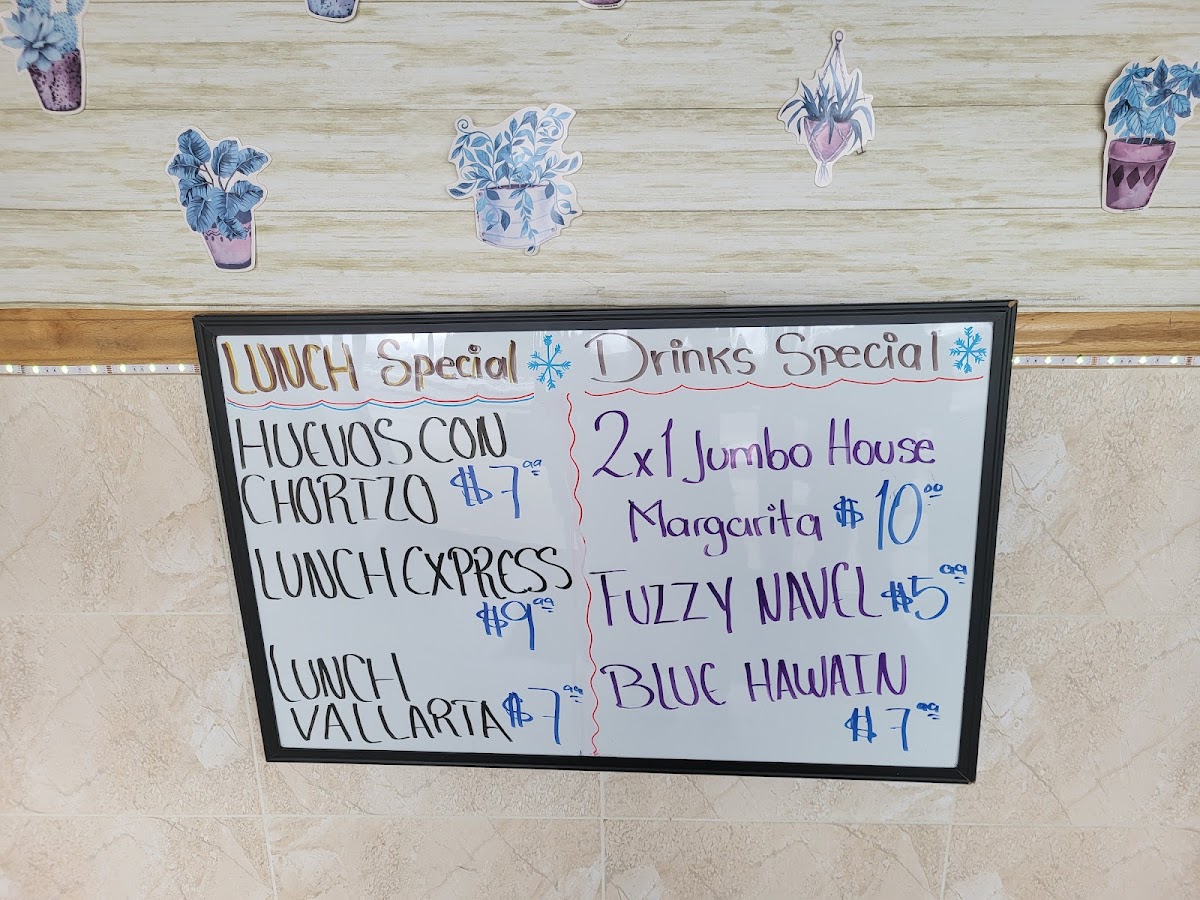 LUNCH Special
HUEVOS CON
CHORIZO $7.99
LUNCH EXPRESS
$9.99
LUNCH
VALLARTA $7.99
Drinks Special
2x1 Jumbo House
Margarita $10.00
FUZZY NAVEL $5.99
BLUE HAWAIN
$7.99